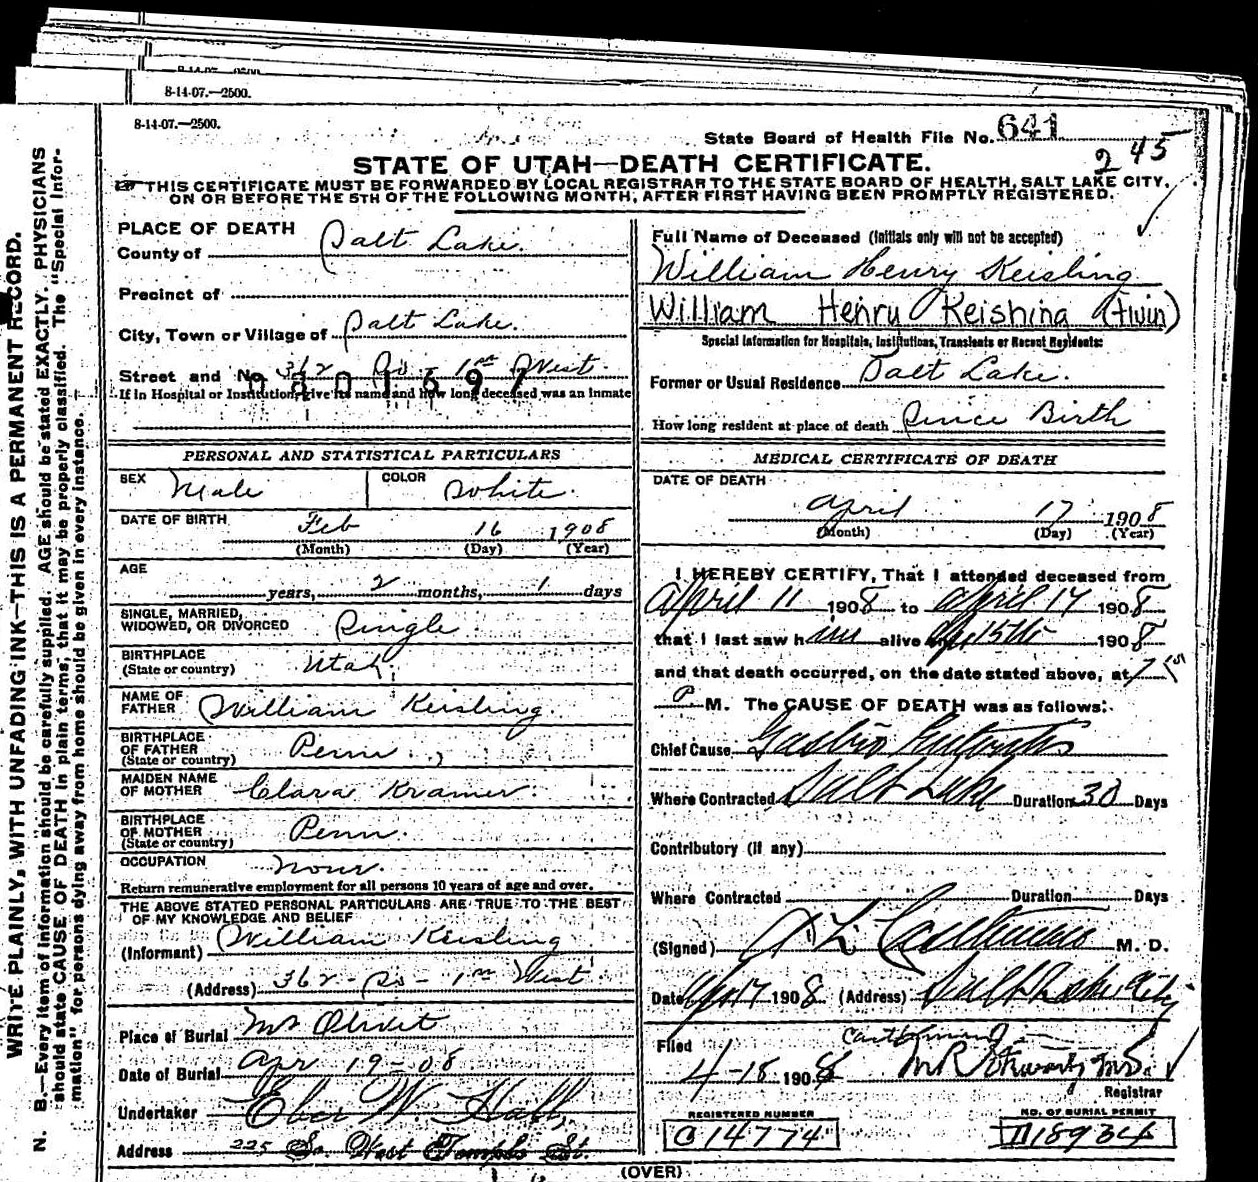 8-14-07.—2500.
8-14-07.—2500.
State Board of Health File No. 641
2 45
STATE OF UTAH—DEATH CERTIFICATE.
THIS CERTIFICATE MUST BE FORWARDED BY LOCAL REGISTRAR TO THE STATE BOARD OF HEALTH, SALT LAKE CITY,
ON OR BEFORE THE 5TH OF THE FOLLOWING MONTH, AFTER FIRST HAVING BEEN PROMPTLY REGISTERED.
WRITE PLAINLY, WITH UNFADING INK—THIS IS A PERMANENT RECORD.
N. B.—Every item of information should be carefully supplied. AGE should be stated EXACTLY. PHYSICIANS
should state CAUSE OF DEATH in plain terms, that it may be properly classified. The "Special Infor-
mation" for persons dying away from home should be given in every instance.
PLACE OF DEATH
County of Salt Lake.
Precinct of
City, Town or Village of Salt Lake.
Street and No. 362 So - 1st West.
0801697
If in Hospital or Institution, give its name and how long deceased was an inmate
PERSONAL AND STATISTICAL PARTICULARS
SEX Male COLOR White.
DATE OF BIRTH Feb 16 1908
(Month) (Day) (Year)
AGE
years, 2 months, 1 days
SINGLE, MARRIED,
WIDOWED, OR DIVORCED Single.
BIRTHPLACE
(State or country) Utah.
NAME OF
FATHER William Keisling.
BIRTHPLACE
OF FATHER
(State or country) Penn.
MAIDEN NAME
OF MOTHER Clara Kramer.
BIRTHPLACE
OF MOTHER
(State or country) Penn.
OCCUPATION none.
Return remunerative employment for all persons 10 years of age and over.
THE ABOVE STATED PERSONAL PARTICULARS ARE TRUE TO THE BEST
OF MY KNOWLEDGE AND BELIEF
(Informant) William Keisling
(Address) 362 - So - 1st West
Place of Burial Mt Olivet
Date of Burial Apr 19-08
Undertaker Eber W. Hall,
Address 225 So. West Temple St.
Full Name of Deceased (Initials only will not be accepted)
William Henry Keisling
William Henry Keishing (twin)
Special Information for Hospitals, Institutions, Transients or Recent Residents:
Former or Usual Residence Salt Lake.
How long resident at place of death Since Birth
MEDICAL CERTIFICATE OF DEATH
DATE OF DEATH
April 17 1908
(Month) (Day) (Year)
I HEREBY CERTIFY, That I attended deceased from
April 11 1908 to April 17 1908
that I last saw him alive Ap 15th 1908
and that death occurred, on the date stated above, at 7
P M. The CAUSE OF DEATH was as follows:
Chief Cause Gastro Enteritis
Where Contracted Salt Lake Duration 30 Days
Contributory (if any)
Where Contracted Duration Days
(Signed) M. D.
Date Ap 17 1908 (Address) Salt Lake City
Filed
4-18 1908 M.D.
Registrar
REGISTERED NUMBER
C14774
NO. OF BURIAL PERMIT
D18934
(OVER)